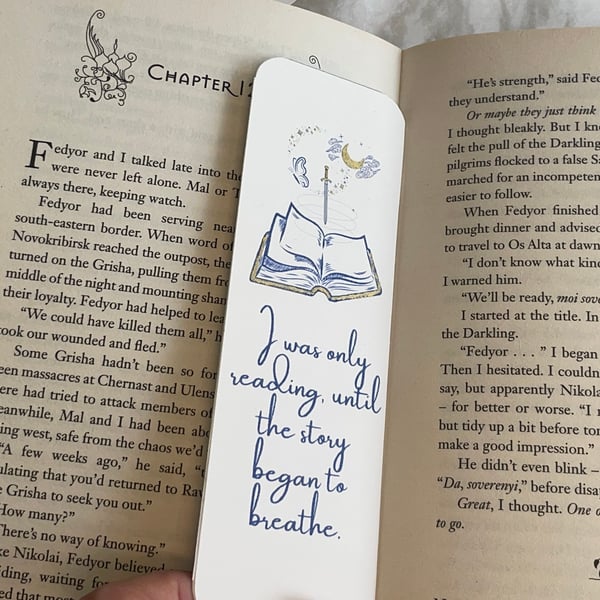 CHAPTER 12
Fedyor and I talked late into the
were never left alone. Mal or
always there, keeping watch.
Fedyor had been serving near
south-eastern border. When word of
Novokribirsk reached the outpost, the
turned on the Grisha, pulling them from
middle of the night and mounting sham
their loyalty. Fedyor had helped to lea
"We could have killed them all," h
took our wounded and fled."
Some Grisha hadn't been so for
een massacres at Chernast and Ulens
ere had tried to attack members of
eanwhile, Mal and I had been abo
ing west, safe from the chaos we'd
"A few weeks ago," he said, "
ulating that you'd returned to Rav
e Grisha to seek you out."
How many?"
There's no way of knowing."
ke Nikolai, Fedyor believed
iding, waiting for
ed that most
I was only
reading, until
the story
began to
breathe.
"He's strength," said Fed
they understand."
Or maybe they just think
I thought bleakly. But I kn
felt the pull of the Darkling
pilgrims flocked to a false Sa
marched for an incompeten
easier to follow.
When Fedyor finished
brought dinner and advised
to travel to Os Alta at dawn
"I don't know what kind
I warned him.
"We'll be ready, moi sove
I started at the title. In
the Darkling.
"Fedyor . . ." I began
Then I hesitated. I couldn
say, but apparently Nikola
– for better or worse. "I
but tidy up a bit before tom
make a good impression."
He didn't even blink –
"Da, soverenyi," before disap
Great, I thought. One o
to go.